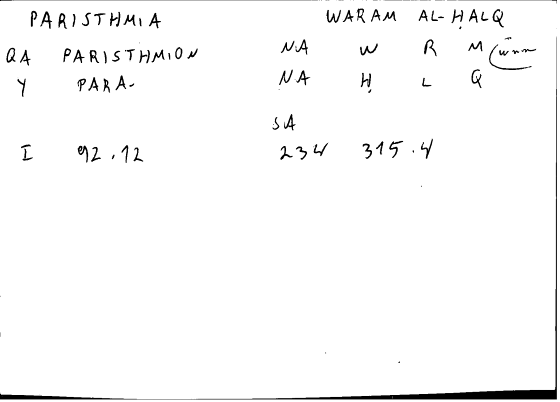 PARISTHMIA WARAM AL-ḤALQ
QA PARISTHMION NA W R M
Y PARA- NA Ḥ L Q
SA
I 92.12 234 315.4